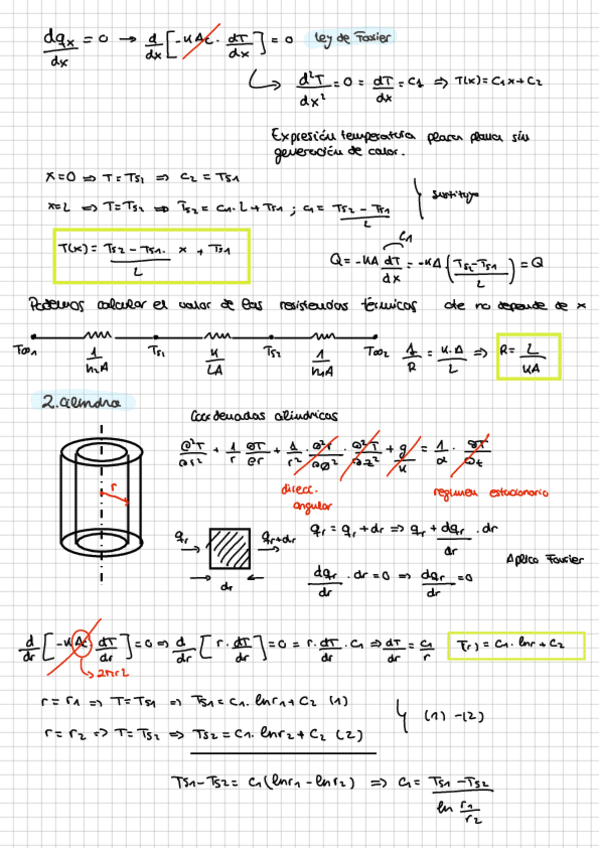 dqx/dx = 0 → d/dx [-KAc · dT/dx] = 0 Ley de Fourier
↳ d²T/dx² = 0 = dT/dx = C1 ⇒ T(x) = C1x + C2
Expresión temperatura placa plana sin
generación de calor.
x=0 ⇒ T = Ts1 ⇒ C2 = Ts1
x=L ⇒ T = Ts2 ⇒ Ts2 = C1·L + Ts1 ; C1 = Ts2 - Ts1 / L
sustituyo
T(x) = Ts2 - Ts1 / L · x + Ts1
C1
Q = -KA dT/dx = -KA (Ts2-Ts1 / L) = Q
Podemos calcular el valor de las resistencias térmicas de no depende de x
T∞1 1/h1A Ts1 K/LA Ts2 1/h1A T∞2
1/R = K·A/L ⇒ R = L/KA
2. Cilindro
Coordenadas cilíndricas
∂²T/∂r² + 1/r ∂T/∂r + 1/r² · ∂²T/∂Ø² + ∂²T/∂z² + g/K = 1/α · ∂T/∂t
direcc.
angular
regimen estacionario
r
qr qr+dr
dr
qr = qr + dr ⇒ qr + dqr/dr · dr
dqr/dr · dr = 0 ⇒ dqr/dr = 0
Aplico Fourier
d/dr [-K Ac dT/dr] = 0 ⇒ d/dr [r · dT/dr] = 0 = r · dT/dr · C1 ⇒ dT/dr = C1/r T(r) = C1 · lnr + C2
2πrL
r = r1 ⇒ T = Ts1 ⇒ Ts1 = C1 · lnr1 + C2 (1)
r = r2 ⇒ T = Ts2 ⇒ Ts2 = C1 · lnr2 + C2 (2)
(1) - (2)
Ts1 - Ts2 = C1 (lnr1 - lnr2) ⇒ C1 = Ts1 - Ts2 / ln r1/r2